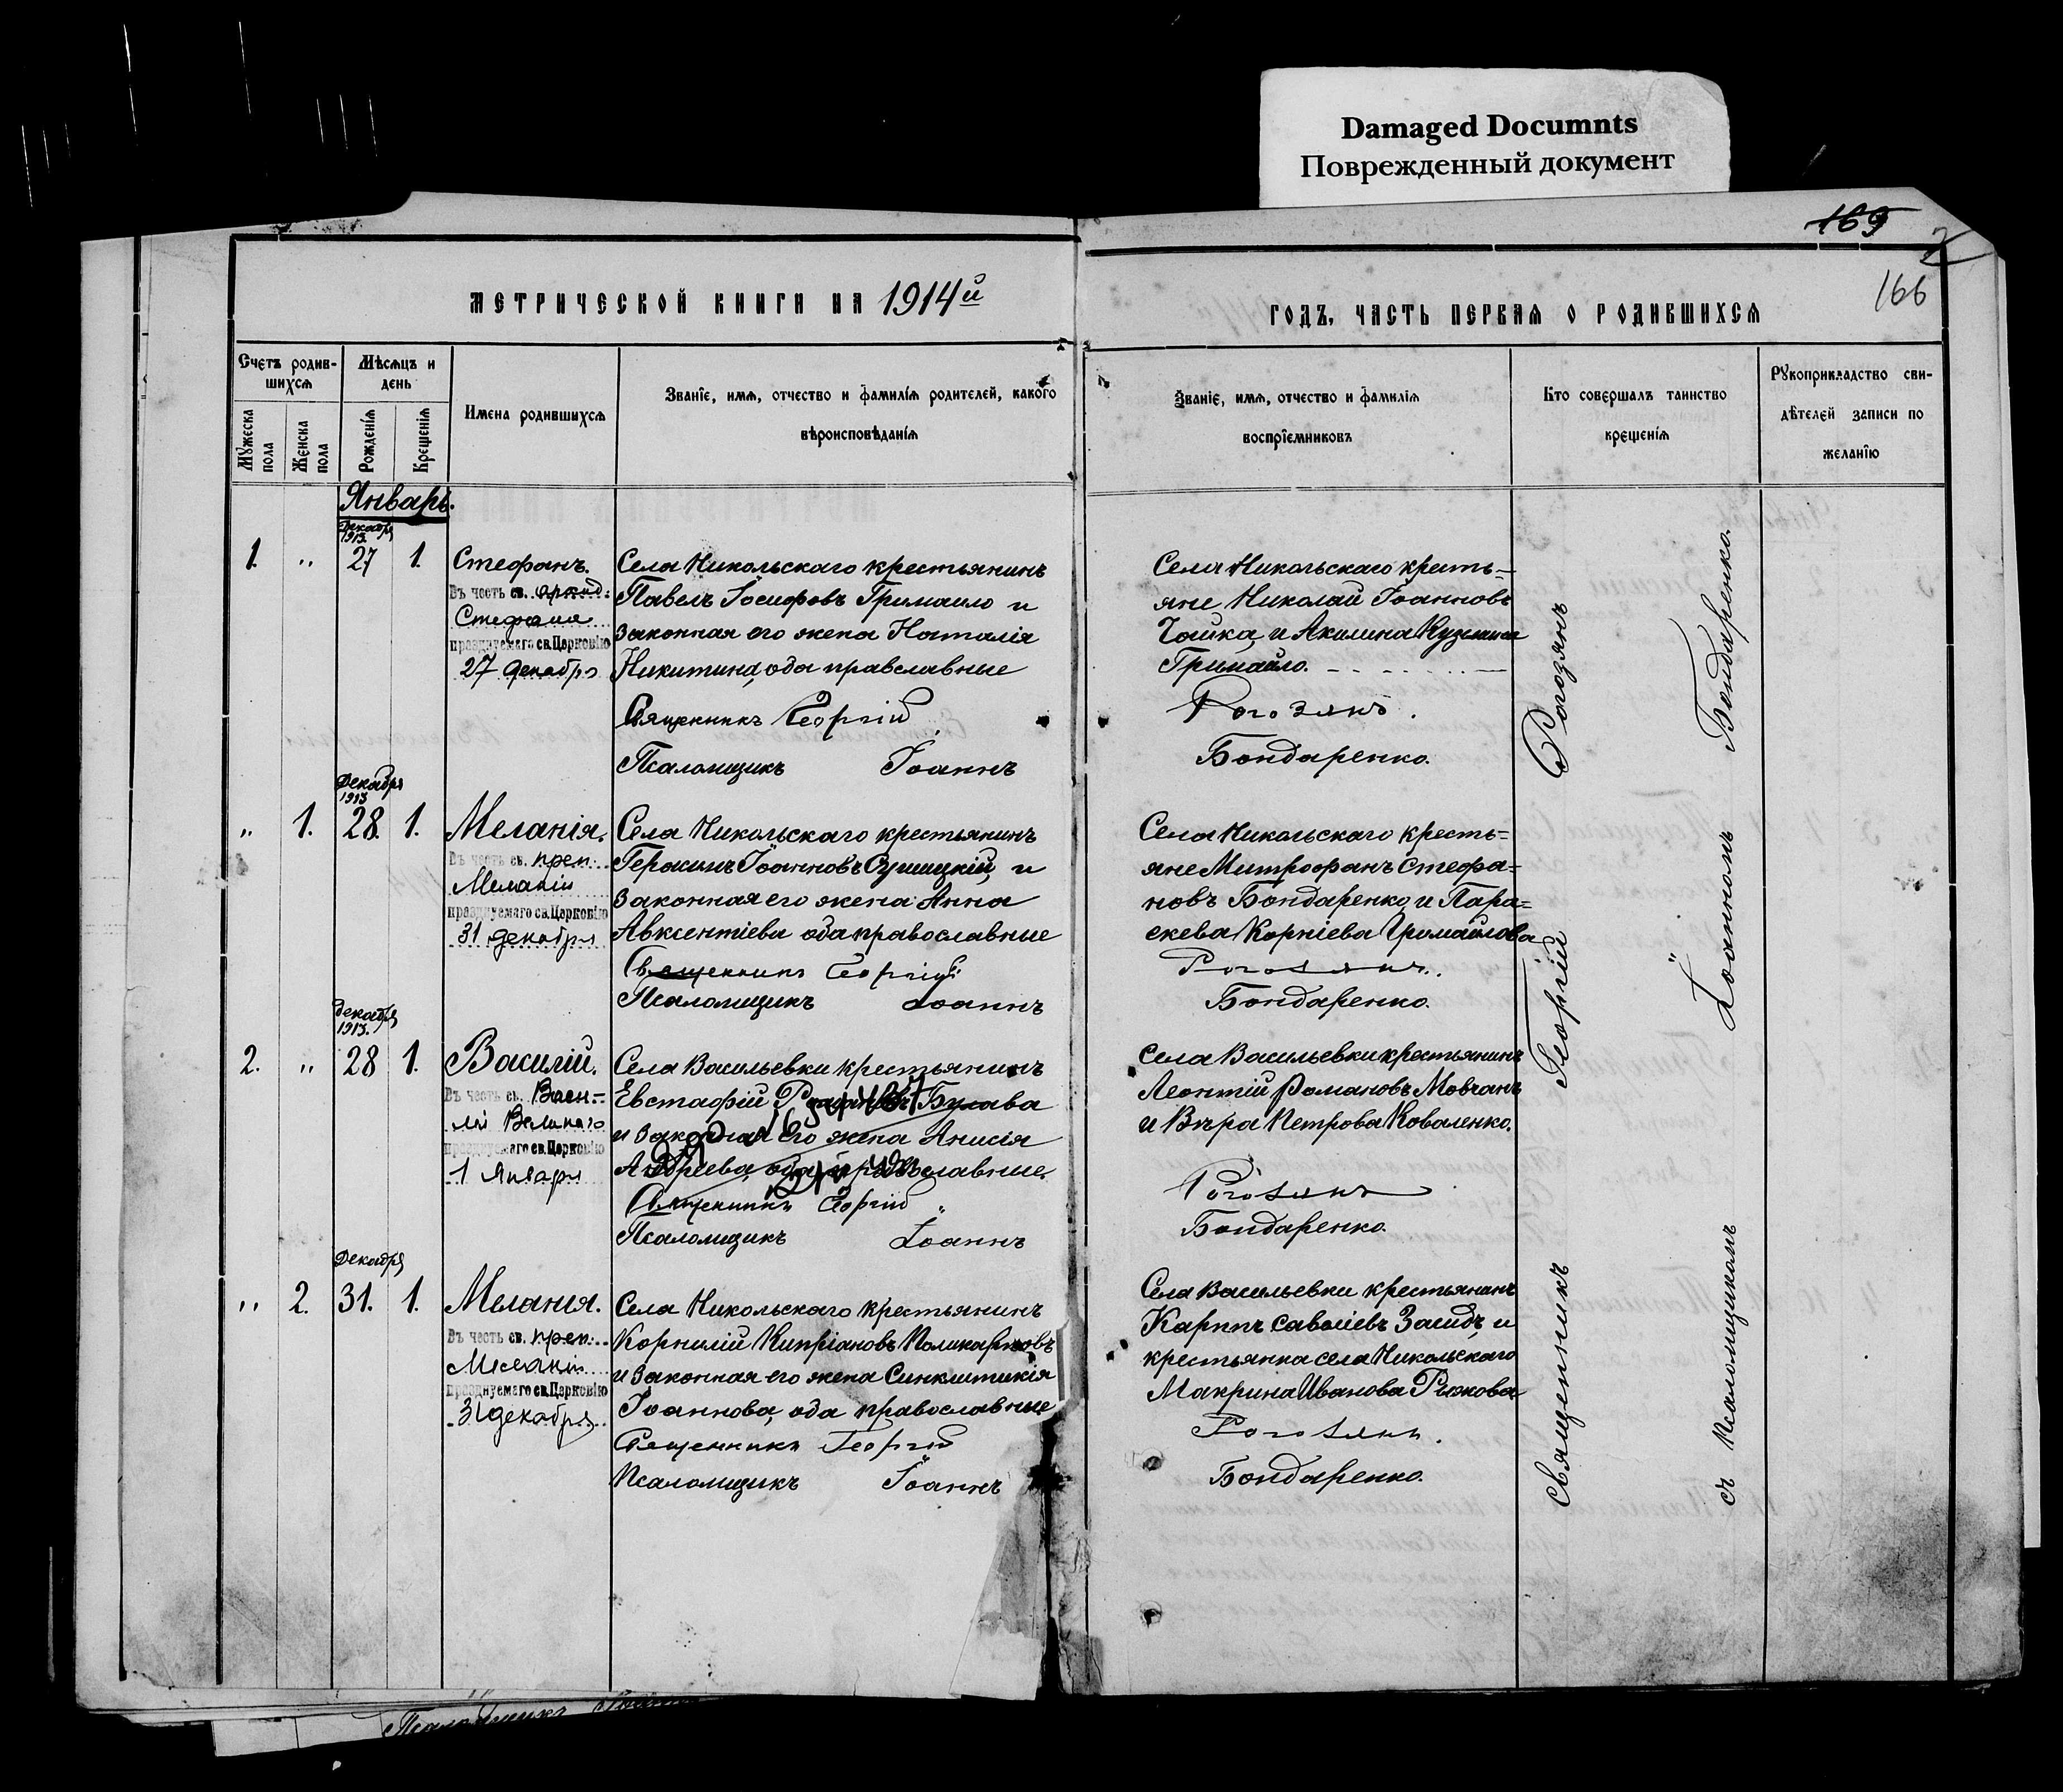 Damaged Documnts
Поврежденный документ
169
166
МЕТРИЧЕСКОЙ КНИГИ НА 1914й
ГОДЪ, ЧАСТЬ ПЕРВАЯ О РОДИВШИХСЯ
Счетъ родив-
шихся
Мѣсяцъ и
день
Мужеска
пола
Женска
пола
Рожденія
Крещенія
Имена родившихся
Званіе, имя, отчество и фамилія родителей, какого
вѣроисповѣданія
Званіе, имя, отчество и фамилія
воспріемниковъ
Кто совершалъ таинство
крещенія
Рукоприкладство сви-
дѣтелей записи по
желанію
Январь.
Декабря
1913.
1. „ 27 1. Стефанъ.
Въ честь св. архид.
Стефана
празднуемаго св. Церковію
27 декабря
Села Никольскаго крестьянинъ
Павелъ Іосифовъ Гримаило и
законная его жена Наталія
Никитина, оба правславные
Священникъ Георгій
Псаломщикъ Іоаннъ
Села Никольскаго кресть-
яне Николай Іоанновъ
Чайка, и Акилина Кузмина
Гримайло.
Рогозянъ.
Бондаренко.
Декабря
1913
„ 1. 28. 1. Меланія.
Въ честь св. преп.
Меланіи
празднуемаго св. Церковію
31 декабря
Села Никольскаго крестьянинъ
Герасимъ Іоанновъ и
законная его жена Анна
Авксентіева оба православные
Священникъ Георгій
Псаломщикъ Іоаннъ
Села Никольскаго кресть=
яне Митрофанъ Стефа=
новъ Бондаренко, и Пара=
скева Корніева Гримайлова
Рогозянъ.
Бондаренко.
Декабря
1913.
2. „ 28 1. Василій.
Въ честь св. Васи-
лія Великаго
празднуемаго св. Церковію
1 Января
Села Васильевки крестьянинъ
Евстафій Романовъ Булава
и законная его жена Анисія
Андреева, оба православные.
Священникъ Георгій
Псаломщикъ Іоаннъ
Села Васильевки крестьянинъ
Леонтій Романовъ Мовчанъ
и Вѣра Петрова Коваленко.
Рогозянъ
Бондаренко.
Декабря
„ 2. 31. 1. Мелания.
Въ честь св. преп.
Меланіи
празднуемаго св. Церковію
31 декабря
Села Никольскаго крестьянинъ
Корнилій Кипріановъ Поликарповъ
и законная его жена Синклитикія
Іоаннова, оба православные
Священникъ Георгій
Псаломщикъ Іоаннъ
Села Васильевки крестьянинъ
Карпъ Саввіевъ и
крестьянка села Никольскаго
Макрина Иванова
Рогозянъ.
Бондаренко.
Священникъ Георгій Рогозянъ
съ Псаломщикомъ Іоанномъ Бондаренко.